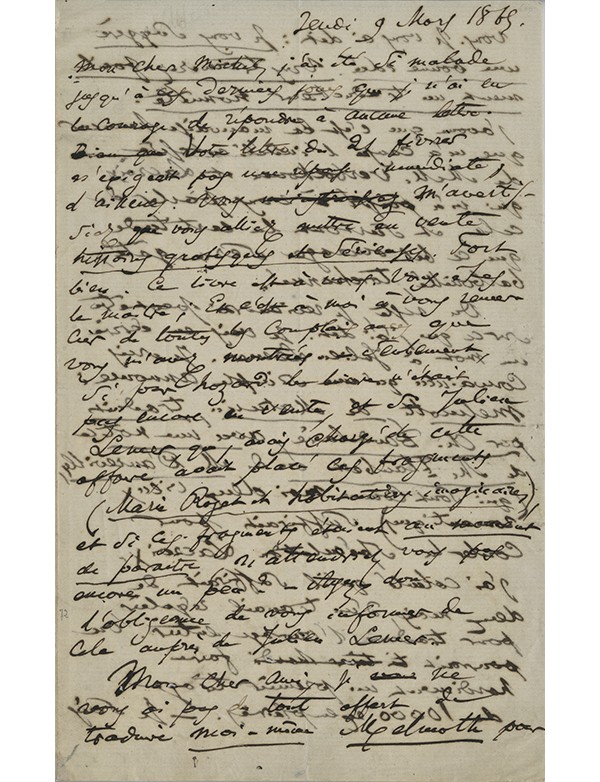 Jeudi 9 Mars 1865.
Mon cher Michel, j'ai été si malade
jusqu'à ces derniers jours que je n'ai eu
le courage de répondre à aucune lettre.
Bien que votre lettre du 21 février
n'exigeait pas une immédiate,
d'ailleurs vous m'avertis-
siez que vous alliez mettre en vente
histoires grotesques et sérieuses. Fort
bien. Ce livre est vous êtes
le maître; Et c'est à moi à vous remer-
cier de toutes les complaisances que
vous m'avez montrées. Seulement
si, par hasard, le livre n'était
pas encore en vente, et si Julien
Lemer que j'avais chargé de cette
affaire avait placé ces fragments
(Marie Roget et habitations imaginaires)
et si ces fragments étaient au moment
de paraître, n'attendriez vous pas
encore un peu? – Ayez donc
l'obligeance de vous informer de
cela auprès de Julien Lemer.
Mon cher ami, je ne
vous ai pas du tout offert de
traduire moi-même Melmoth pour